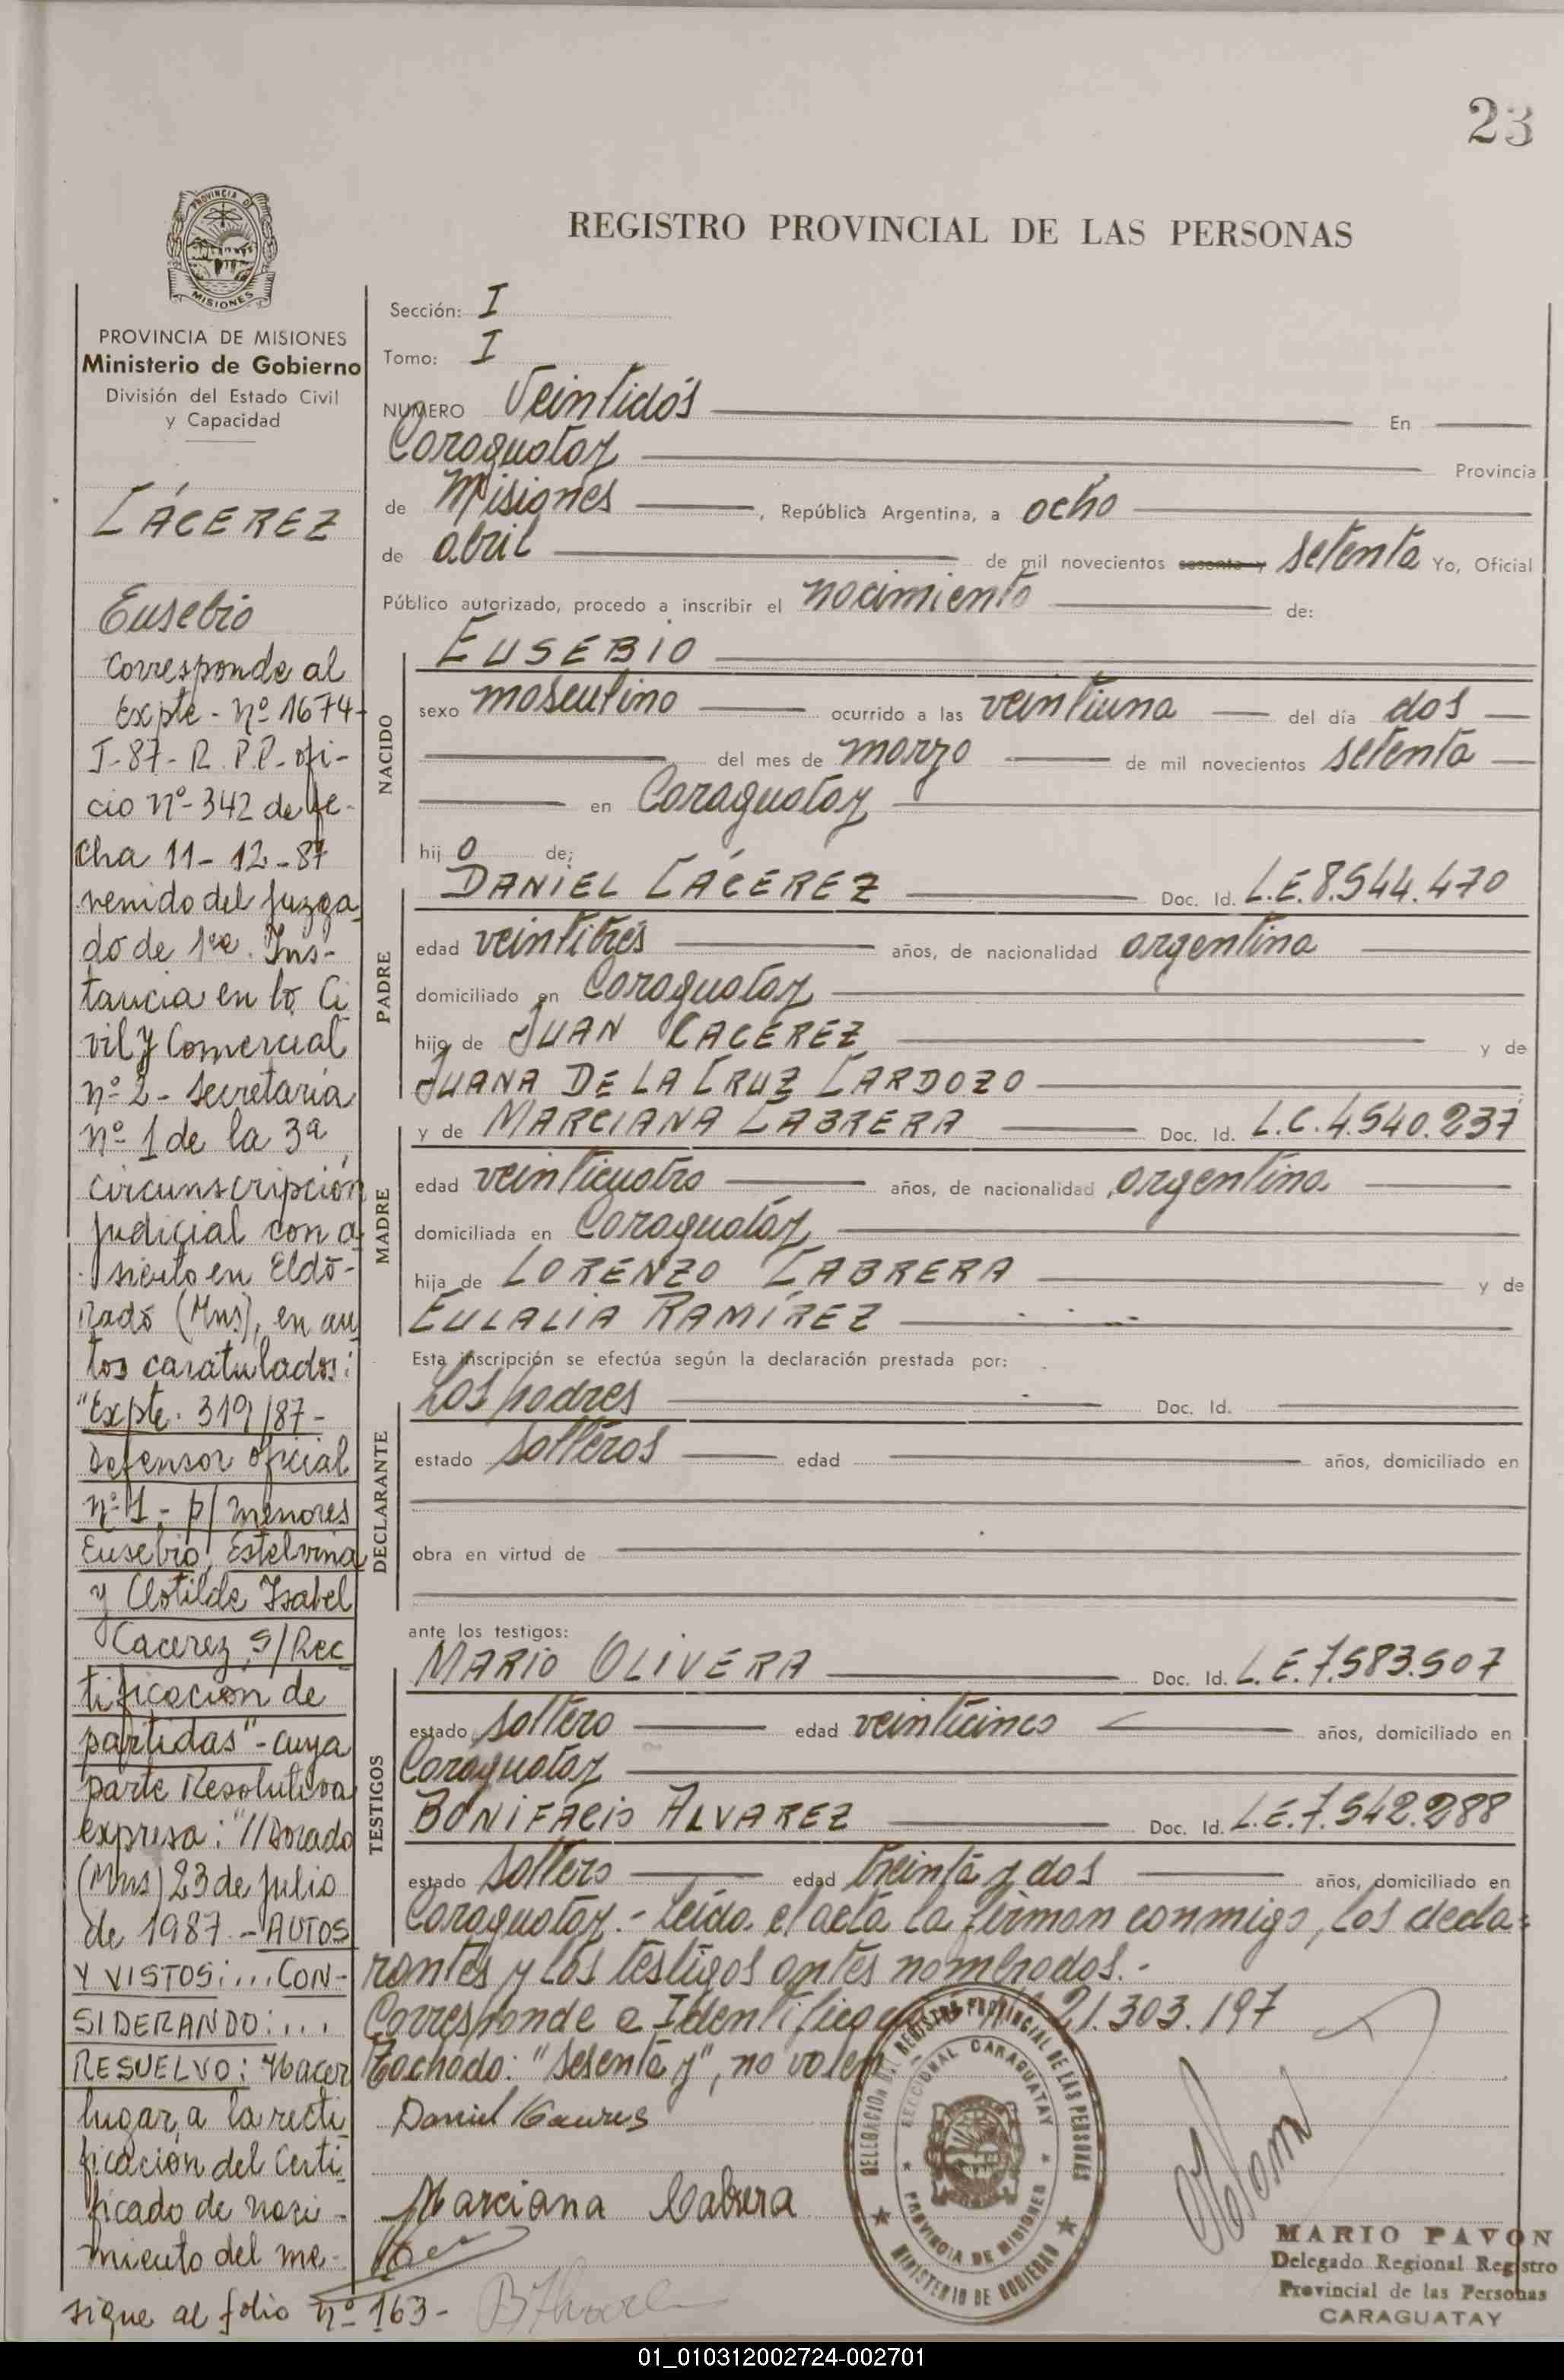 23
REGISTRO PROVINCIAL DE LAS PERSONAS
PROVINCIA DE
MISIONES
PROVINCIA DE MISIONES
Ministerio de Gobierno
División del Estado Civil
y Capacidad
CÁCEREZ
Eusebio
Corresponde al
Expte - nº 1674-
J-87- R.P.P.- ofi-
cio nº- 342 de fe-
cha 11-12-87
venido del Juzga
do de 1ra. Ins-
tancia en lo Ci
vil y Comercial
nº 2 - secretaria
nº 1 de la 3ª
circunscripción
judicial con a
siento en Eldo-
rado (Mns), en au
tos caratulados:
"Expte. 319/87-
Defensor oficial
nº 1 - p/ menores
Eusebio, Estelvina
y Clotilde Isabel
Cacerez s/ Rec
tificacion de
partidas" - cuya
parte Resolutiva
expresa: "//Dorado
(Mns) 23 de julio
de 1987. - AUTOS
Y VISTOS:... CON-
SIDERANDO:...
RESUELVO: Hacer
lugar a la recti
ficación del Certi
ficado de naci-
miento del me-
sigue al folio nº 163-
Sección: I
Tomo: I
NUMERO Veintidós En
Caraguatay Provincia
de Misiones, República Argentina, a ocho
de abril de mil novecientos sesenta y setenta Yo, Oficial
Público autorizado, procedo a inscribir el nacimiento de:
NACIDO
EUSEBIO
sexo masculino ocurrido a las veintiuna del día dos
del mes de marzo de mil novecientos setenta
en Caraguatay
hijo de:
PADRE
DANIEL CÁCEREZ Doc. Id. L.E.8.544.470
edad veintitrés años, de nacionalidad argentina
domiciliado en Caraguatay
hijo de JUAN CACEREZ y de
JUANA DE LA CRUZ CARDOZO
MADRE
y de MARCIANA CABRERA Doc. Id. L.C.4.540.237
edad veinticuatro años, de nacionalidad argentina
domiciliada en Caraguatay
hija de LORENZO CABRERA y de
EULALIA RAMÍREZ
Esta inscripción se efectúa según la declaración prestada por:
DECLARANTE
Los padres Doc. Id.
estado solteros edad años, domiciliado en
obra en virtud de
ante los testigos:
TESTIGOS
MARIO OLIVERA Doc. Id. L.E.7.583.507
estado soltero edad veinticinco años, domiciliado en
Caraguatay
BONIFACIO ALVAREZ Doc. Id. L.E.7.542.288
estado soltero edad treinta y dos años, domiciliado en
Caraguatay.- Leída el acta la firman conmigo, los decla-
rantes y los testigos antes nombrados.-
Corresponde a 21.303.197
Tachado: "sesenta y", no valen
Daniel
Marciana Cabrera
DELEGACION DEL REGISTRO PROVINCIAL DE LAS PERSONAS
SECCIONAL CARAGUATAY
PROVINCIA DE MISIONES
MINISTERIO DE GOBIERNO
MARIO PAVON
Delegado Regional Registro
Provincial de las Personas
CARAGUATAY
01_010312002724-002701